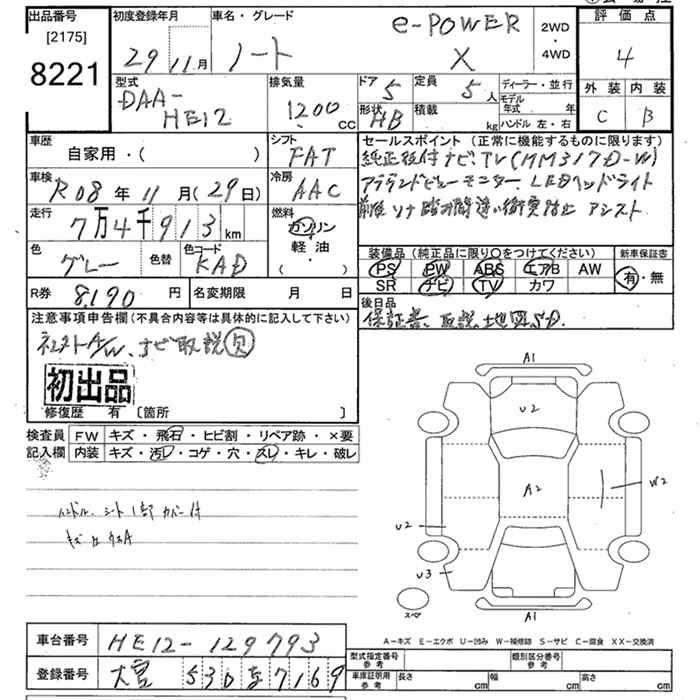 出品番号
[2175]
8221
初度登録年月
29 11月
車名・グレード
ノート
e-POWER
X
2WD
・
4WD
評価点
4
外装 内装
C B
型式
DAA-
HE12
排気量
1200
CC
ドア 5
定員 5人
形状 HB
積載 kg
ディーラー・並行
モデル年式 年
ハンドル 左・右
車歴
自家用・( )
シフト
FAT
車検
R08年11月(29日)
冷房
AAC
走行
7万4千913km
燃料
ガソリン
軽油
( ・ )
色
グレー
色替
色コード
KAD
R券 8,190 円
名変期限 月 日
セールスポイント (正常に機能するものに限ります)
純正後付ナビ、TV(MM317D-W)
アラウンドビューモニター LEDヘッドライト
前後ソナー 踏み間違い衝突防止アシスト
装備品 (純正品に限り○をつけてください)
PS PW ABS エアB AW
SR ナビ TV カワ
新車保証書
有・無
後日品
保証書、取説、地図SD.
注意事項申告欄(不具合内容等は具体的に記入して下さい)
社外A/W、ナビ取説欠
初出品
修復歴 有 [箇所 ]
検査員
記入欄
FW キズ・飛石・ヒビ割・リペア跡・×要
内装 キズ・汚レ・コゲ・穴・スレ・キレ・破レ
ハンドル、シート1部カバー付
A1
U2
A2
W2
U2
U3
スペア
A1
A-キズ E-エクボ U-凹み W-補修跡 S-サビ C-腐食 XX-交換済
車台番号 HE12-129793
登録番号 大宮 530 7169
型式指定番号
参考
類別区分番号
参考
車庫証明用
参考
長さ cm
幅 cm
高さ cm